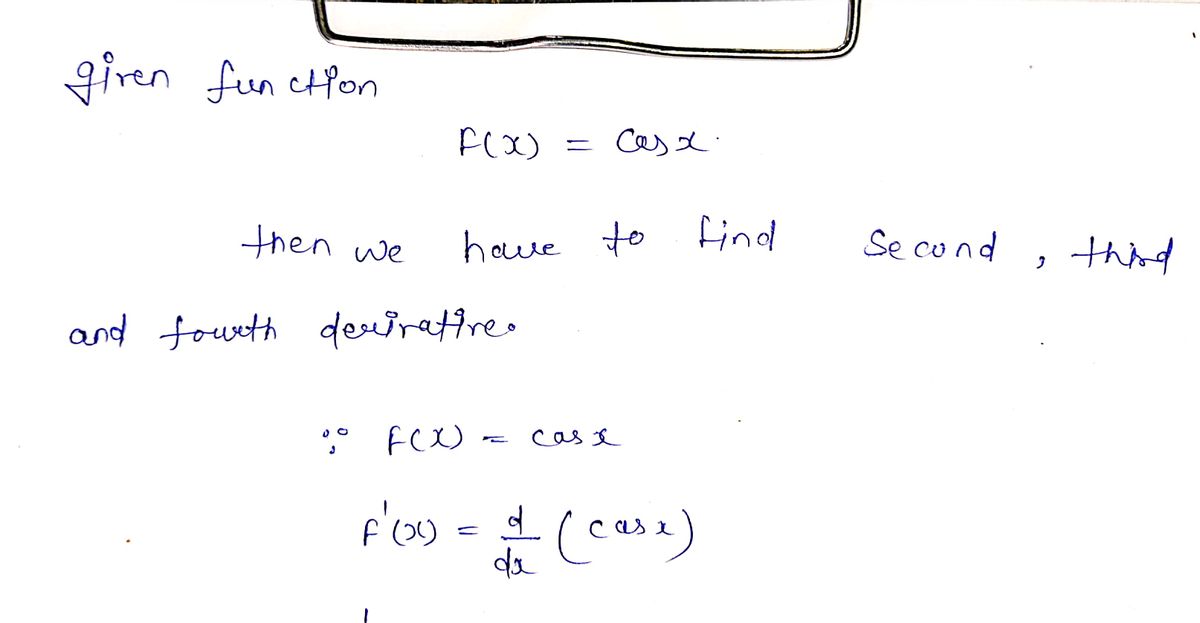 given function
f(x) = cos x.
then we have to find second, third
and fourth derivative.
∵ f(x) = cos x
f'(x) = d/dx (cos x)